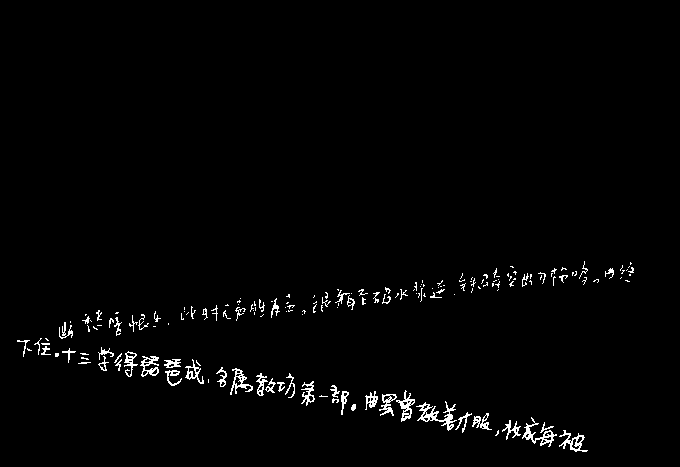 幽愁暗恨生，此时无声胜有声。银瓶乍破水浆迸，铁骑突出刀枪鸣。曲终
下住。十三学得琵琶成，名属教坊第一部。曲罢曾教善才服，妆成每被